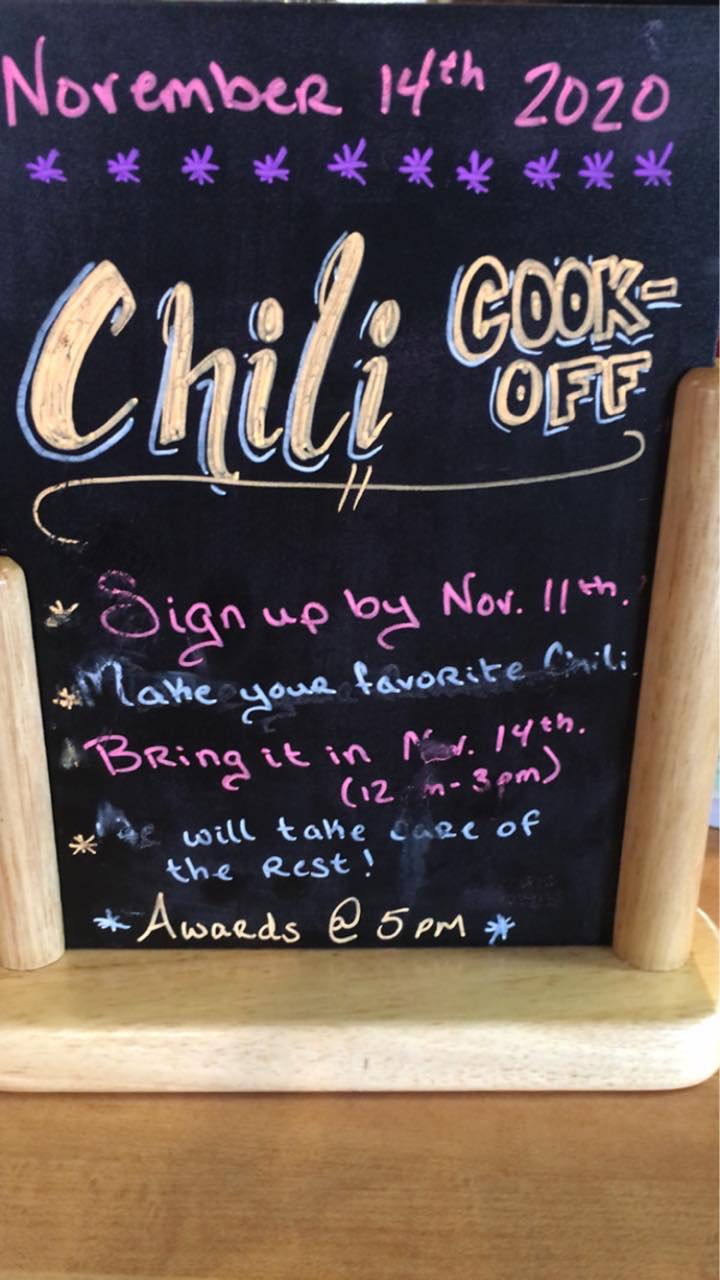 November 14th 2020
* * * * * * * * * *
Chili COOK-
OFF
* Sign up by Nov. 11th.
* Make your favorite Chili.
* Bring it in Nov. 14th.
(12 - 3pm)
* will take care of
the Rest!
* Awards @ 5 PM *